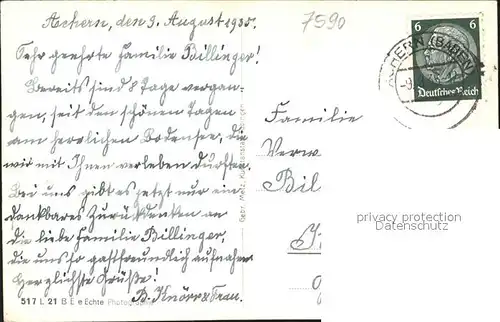 Achern, den 9. August 1935.
7590
Sehr geehrte Familie Billinger!
Bereits sind 8 Tage vergan-
gen, seit den schönen Tagen
am herrlichen Bodensee, die
wir mit Ihnen verleben durften.
Bei uns gibt es jetzt nur ein
dankbares Zurückdenken an
die liebe Familie Billinger,
die uns so gastfreundlich aufnahm.
Herzlichste Grüße!
B. Knörr & Frau.
517 L 21 B E e Echte Photographie
Gebr. Metz, Kunstanstalt, Tübingen
6 6
Deutsches Reich
ACHERN (BADEN)
Familie
Verw
Bil
privacy protection
Datenschutz